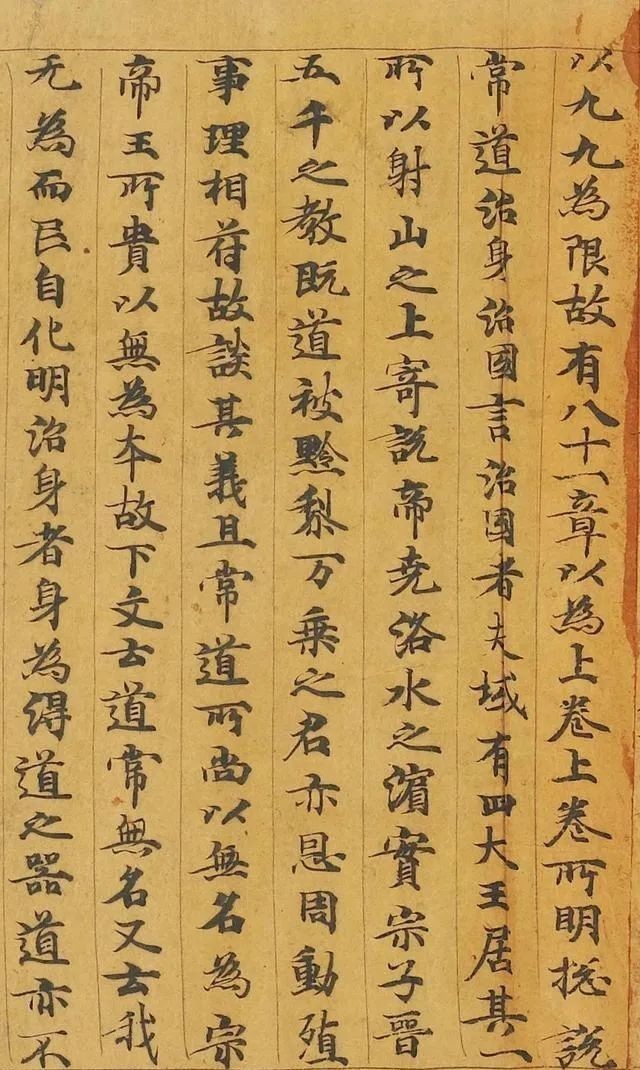 以九九為限故有八十一章以為上卷上卷所明摠說
常道治身治國言治國者夫域有四大王居其一
所以射山之上寄說帝堯洛水之濱實宗子晉
五千之教既道被黔黎万乘之君亦恩周動殖
事理相符故談其義且常道所尚以無名為宗
帝王所貴以無為為本故下文云道常無名又云我
无為而民自化明治身者身為得道之器道亦不